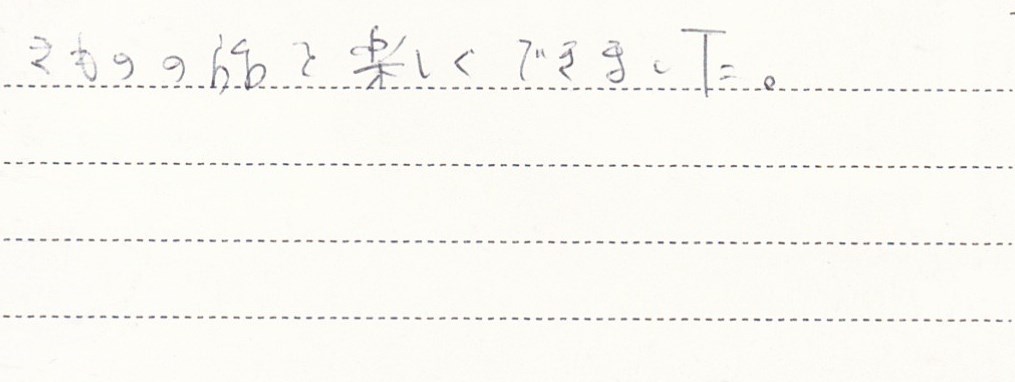 きものの話と楽しくできました。